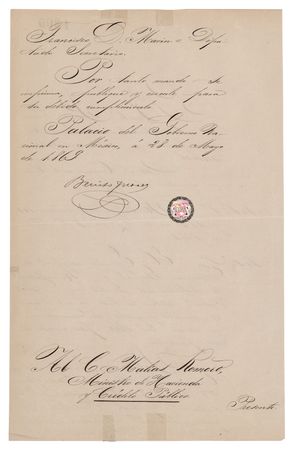 Francisco D. Marin = Dipu
tado Secretario.
Por tanto mando se
imprima, publique y circule para
su debido cumplimiento.
Palacio del Gobierno Na-
cional en México, a 28 de Mayo
de 1868
Benito Juarez
Al C. Matias Romero,
Ministro de Hacienda
y Crédito Público
Presente.